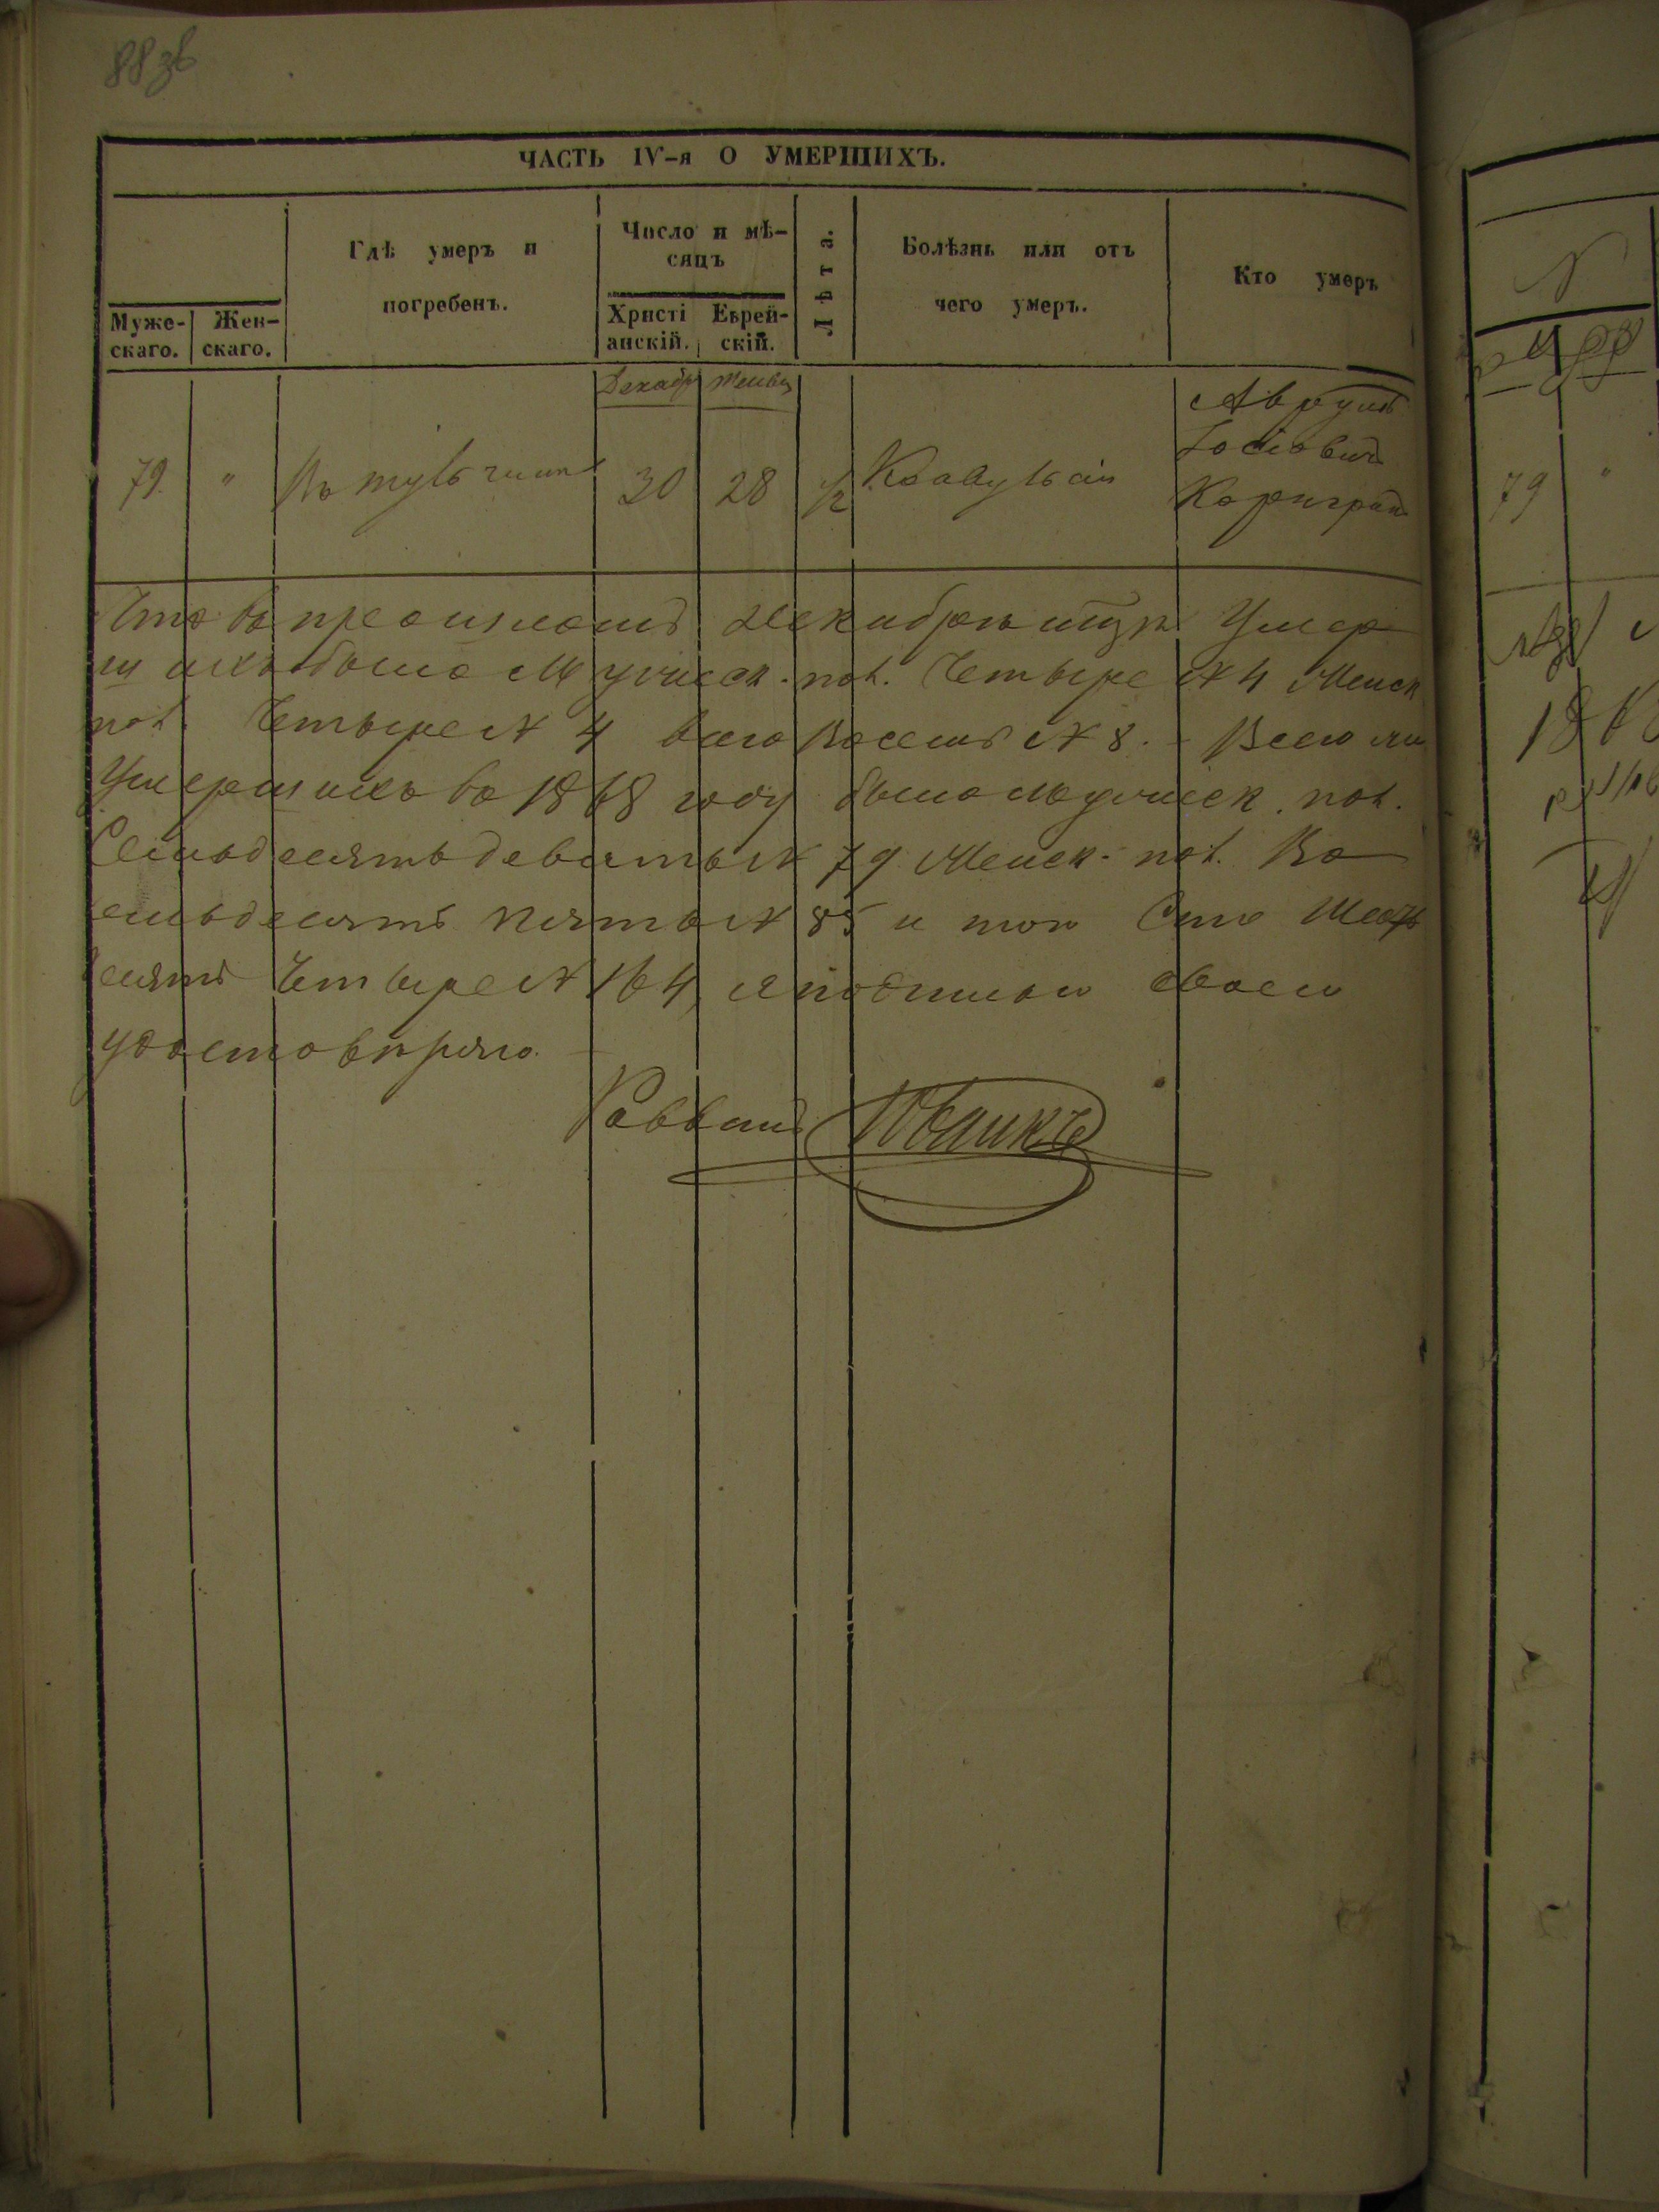 88 зв
ЧАСТЬ IV-я О УМЕРШИХЪ.
Муже-скаго.
Жен-скаго.
Гдѣ умеръ и погребенъ.
Число и мѣ-сяцъ
Христіанскій.
Еврей-скій.
Лѣта.
Болѣзнь или отъ чего умеръ.
Кто умеръ
Декабр
79. " Въ тульчинѣ 30 28 1/2 Конвульсіи
Аврумъ
Іосіовичъ
Что въ прошломъ декабрѣ мцѣ Умер
шихъ было Мужеск. пол. Четыре № 4 Женск
пол. Четыре № 4 всего Восемь № 8. - Всего
Умершихъ въ 1868 году было мужеск. пол.
Семьдесятъ девять № 79 Женск. пол. Во
семьдесятъ пять № 85 и того Сто Шесть
десятъ Четыре № 164, подписью своею
удостовѣряю.
Раввинъ
79 "